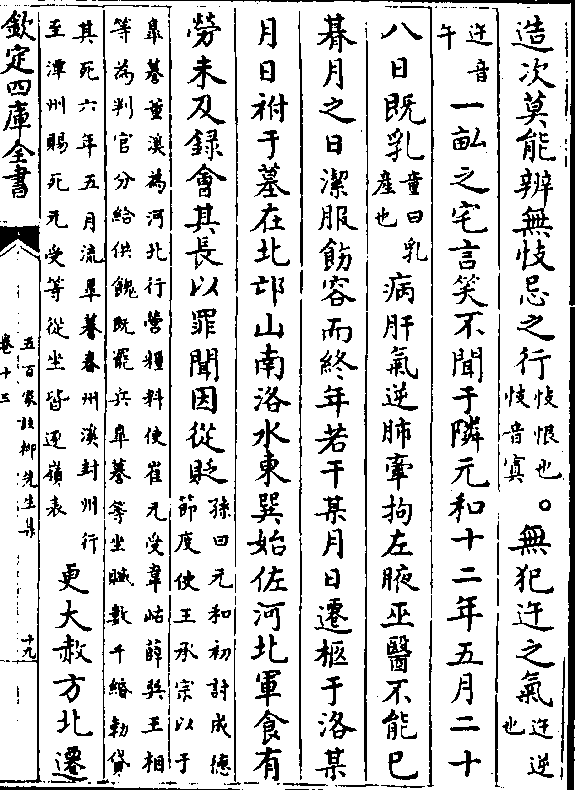 造次莫能辨無忮忌之行忮恨也忮音寘。無犯迕之氣迕逆也
迕音午一畝之宅言笑不聞于隣元和十二年五月二十
八日既乳童曰乳產也病肝氣逆肺牽拘左腋巫醫不能已
朞月之日潔服飭容而終年若干某月日遷柩于洛某
月日祔于墓在北邙山南洛水東巽始佐河北軍食有
勞未及錄會其長以罪聞因從貶孫曰元和初討成德節度使王承宗以于
臯謩董溪為河北行營糧料使崔元受韋岵薛巽王相
等為判官分給供餽既罷兵臯謩等坐贓數千緡勅貸
其死六年五月流臯謩春州溪封州行
至潭州賜死元受等從坐皆逐嶺表更大赦方北遷
欽定四庫全書
五百家註柳先生集
卷十三
十九